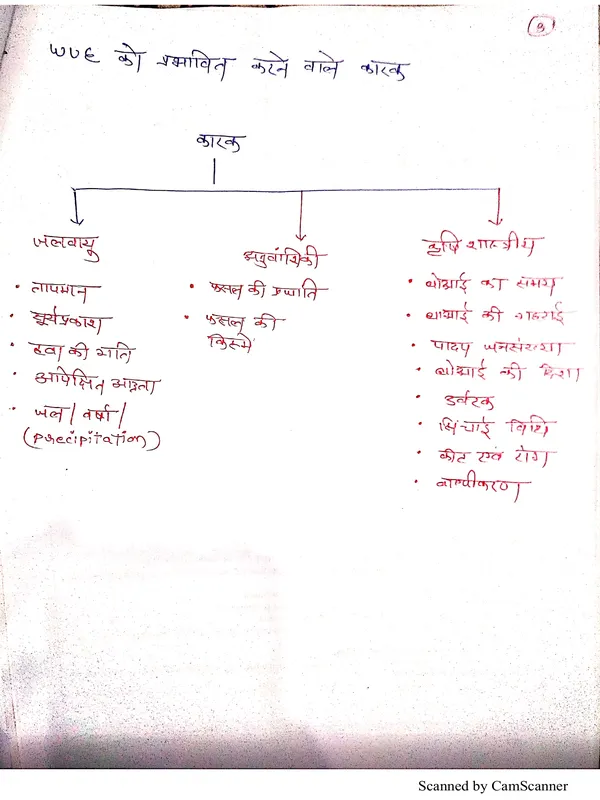 9
WUE को प्रभावित करने वाले कारक
कारक
जलवायु
• तापमान
• सूर्यप्रकाश
• हवा की गति
• आपेक्षित आद्रता
• जल / वर्षा /
(precipitation)
अनुवांशिकी
• फसल की प्रजाति
• फसल की
किस्में
कृषि शास्त्रीय
• बोआई का समय
• बोआई की गहराई
• पादप जनसंख्या
• बोआई की दिशा
• उर्वरक
• सिंचाई विधि
• कीट एवं रोग
• वाष्पीकरण
Scanned by CamScanner